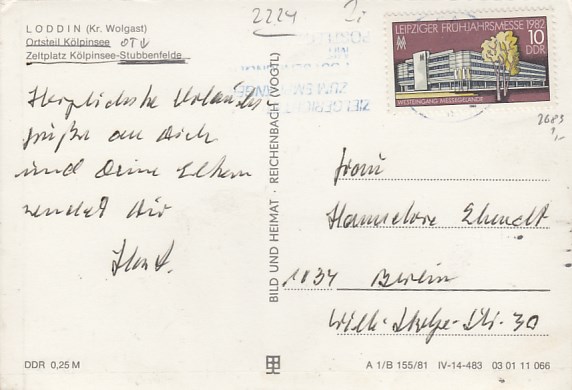 LODDIN (Kr. Wolgast)
Ortsteil Kölpinsee OT↓
Zeltplatz Kölpinsee-Stubbenfelde
2224
LEIPZIGER FRÜHJAHRSMESSE 1982
10
DDR
WESTEINGANG MESSEGELÄNDE
2683
1,-
Herzlichste Urlaubs
grüße an Dich
und Deine Eltern
sendet Dir
BILD UND HEIMAT · REICHENBACH (VOGTL)
Frau
Hannelore
1034 Berlin
-Str. 30
DDR 0,25 M
A 1/B 155/81 IV-14-483 03 01 11 066